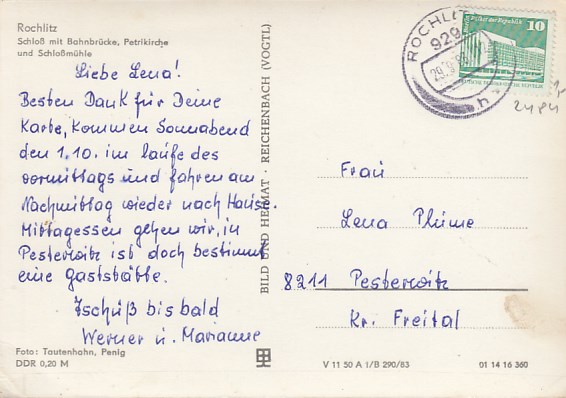 Rochlitz
Schloß mit Bahnbrücke, Petrikirche
und Schloßmühle
Liebe Lena!
Besten Dank für Deine
Karte, kommen Sonnabend
den 1.10. im laufe des
vormittags und fahren am
Nachmittag wieder nach Hause.
Mittagessen gehen wir, in
Pesterwitz ist doch bestimmt
eine Gaststätte.
Tschüß bis bald
Werner u. Marianne
Foto: Tautenhahn, Penig
DDR 0,20 M
BILD UND HEIMAT · REICHENBACH (VOGTL)
V 11 50 A I/B 290/83
01 14 16 360
ROCHLITZ
929
10
2484
Frau
Lena Plüme
8211 Pesterwitz
Kr. Freital